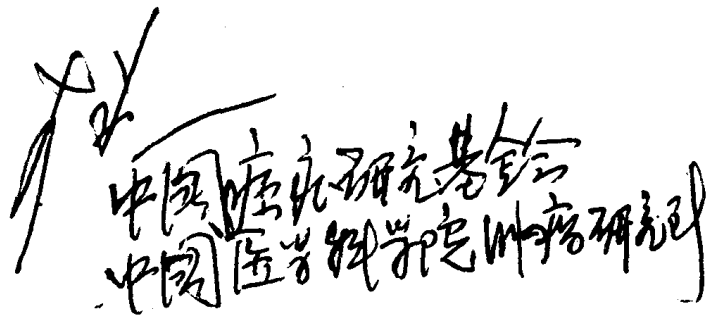 中国癌症研究基金会
中国医学科学院肿瘤研究所